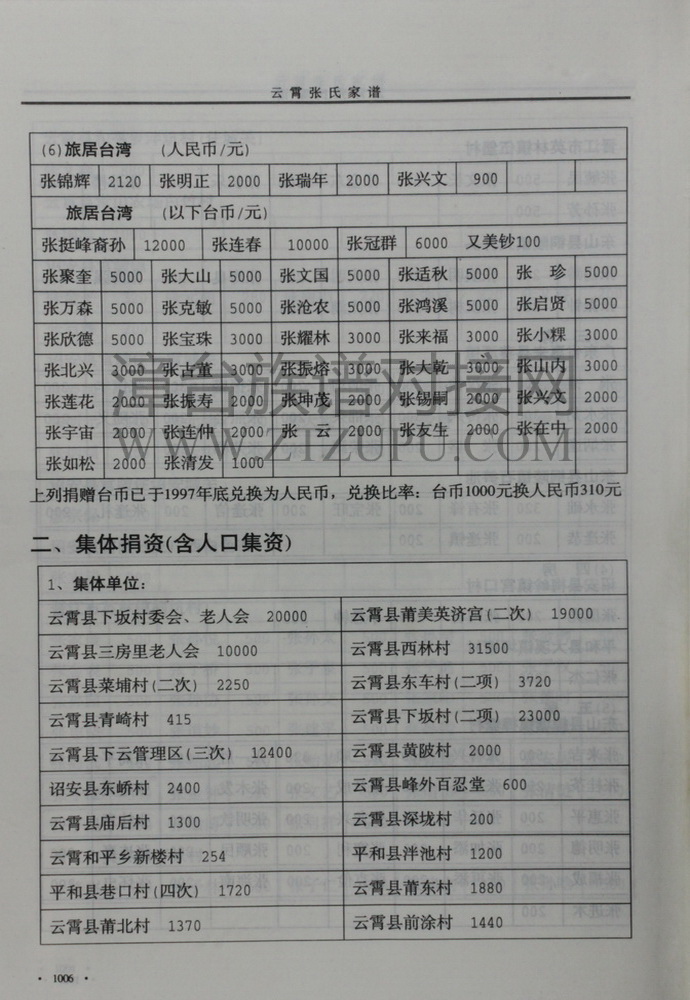 云霄张氏家谱
(6)旅居台湾 (人民币/元)
张锦辉 2120 张明正 2000 张瑞年 2000 张兴文 900
旅居台湾 (以下台币/元)
张挺峰裔孙 12000 张连春 10000 张冠群 6000 又美钞100
张聚奎 5000 张大山 5000 张文国 5000 张适秋 5000 张 珍 5000
张万森 5000 张克敏 5000 张沧农 5000 张鸿溪 5000 张启贤 5000
张欣德 5000 张宝珠 3000 张耀林 3000 张来福 3000 张小粿 3000
张北兴 3000 张古董 3000 张振熔 3000 张大乾 3000 张山内 3000
张莲花 2000 张振寿 2000 张坤茂 2000 张锡嗣 2000 张兴文 2000
张宇宙 2000 张连仲 2000 张 云 2000 张友生 2000 张在中 2000
张如松 2000 张清发 1000
漳台族谱对接网
WWW.ZTZUPU.COM
上列捐赠台币已于1997年底兑换为人民币，兑换比率：台币1000元换人民币310元
二、集体捐资(含人口集资)
1、集体单位：
云霄县下坂村委会、老人会 20000 云霄县莆美英济宫(二次) 19000
云霄县三房里老人会 10000 云霄县西林村 31500
云霄县菜埔村(二次) 2250 云霄县东车村(二项) 3720
云霄县青崎村 415 云霄县下坂村(二项) 23000
云霄县下云管理区(三次) 12400 云霄县黄陂村 2000
诏安县东峤村 2400 云霄县峰外百忍堂 600
云霄县庙后村 1300 云霄县深垅村 200
云霄和平乡新楼村 254 平和县泮池村 1200
平和县巷口村(四次) 1720 云霄县莆东村 1880
云霄县莆北村 1370 云霄县前涂村 1440
· 1006 ·